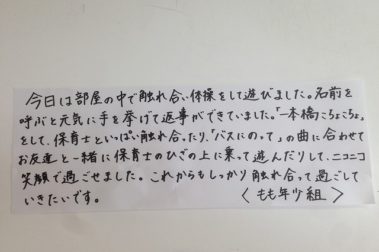 今日は部屋の中で触れ合い体操をして遊びました。名前を
呼ぶと元気に手を挙げて返事ができていました。「一本橋こちょこちょ」
をして、保育士といっぱい触れ合ったり、「バスにのって」の曲に合わせて
お友達と一緒に保育士のひざの上に乗って遊んだりして、ニコニコ
笑顔で過ごせました。これからもしっかり触れ合って過ごして
いきたいです。 〈もも年少組〉